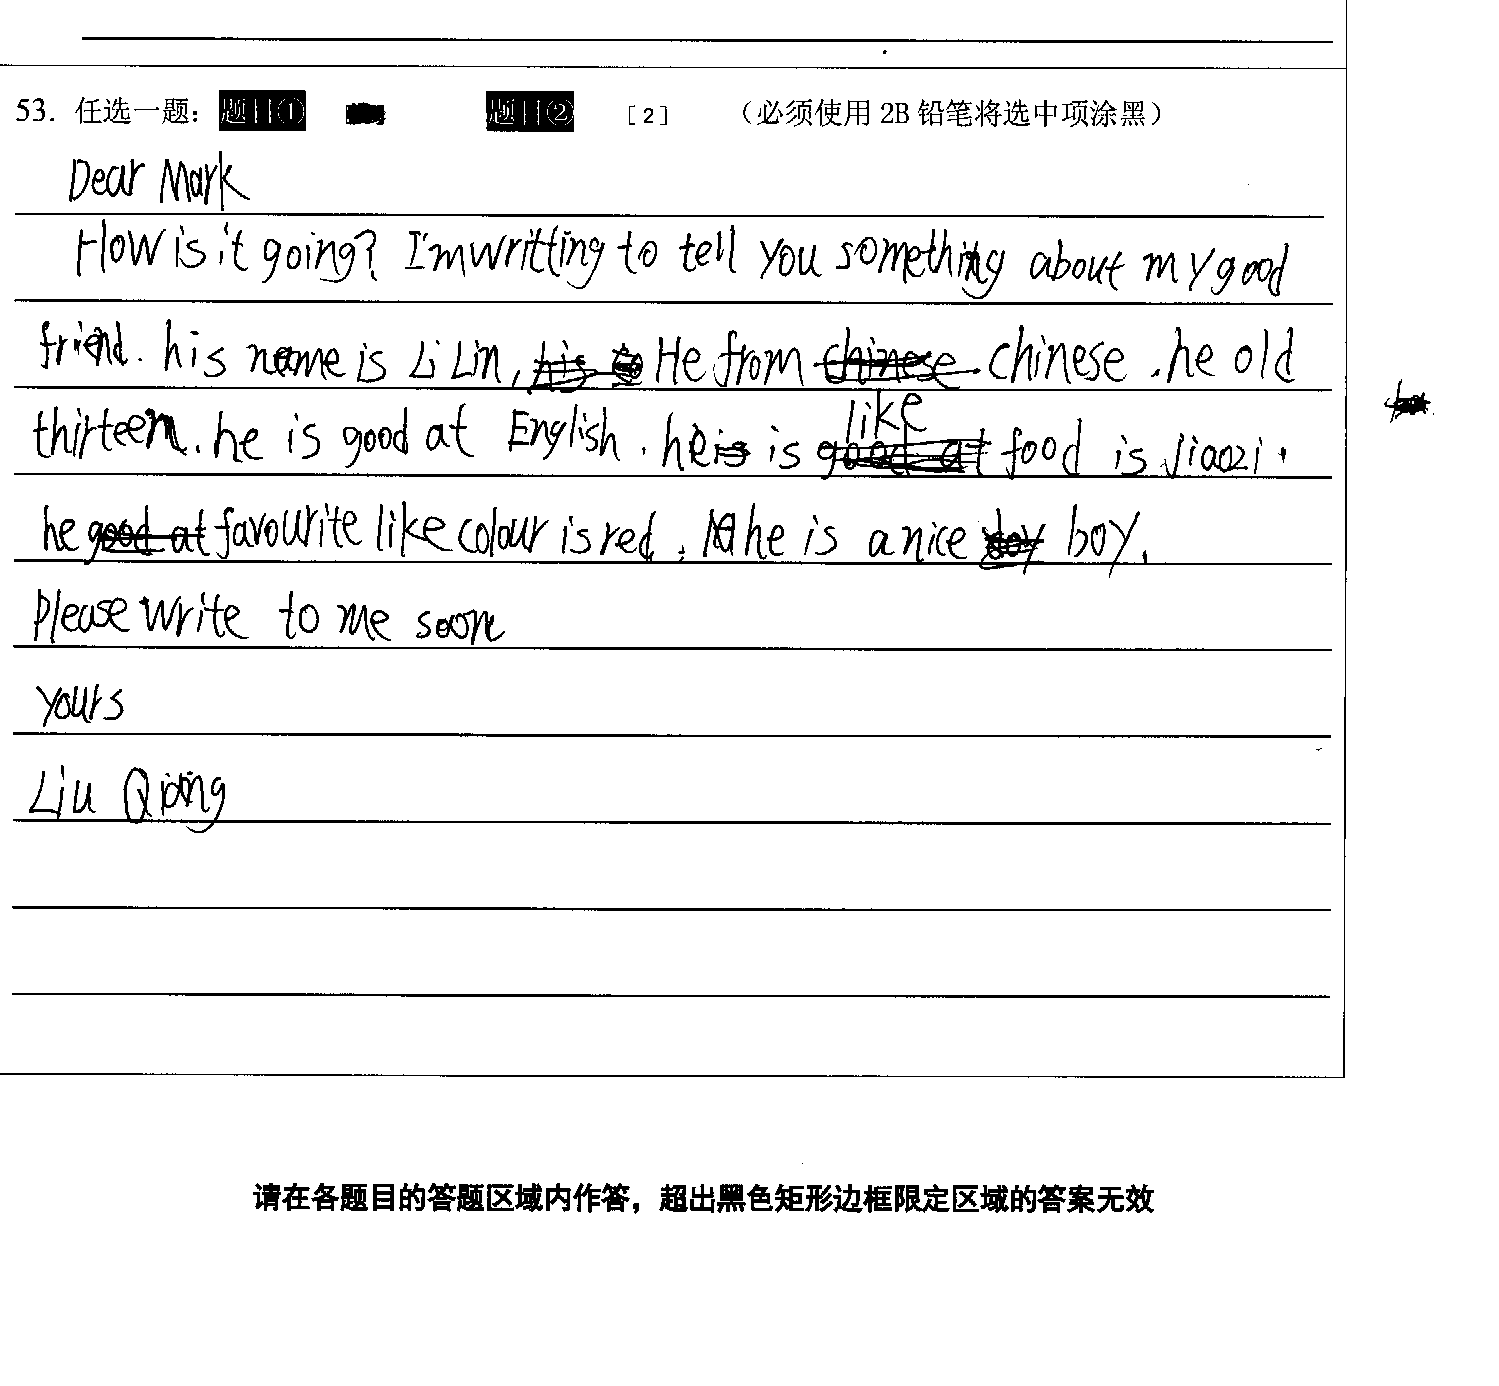 53. 任选一题： 题目① 题目② [2] （必须使用 2B 铅笔将选中项涂黑）
Dear Mark
How is it going? I'm writting to tell you something about my good
friend. his name is Li Lin, He from chinese. he old
thirteen. he is good at English. he is like food is Jiaozi.
he favourite like colour is red. he is a nice boy.
please write to me soon
yours
Liu Qiang
请在各题目的答题区域内作答，超出黑色矩形边框限定区域的答案无效